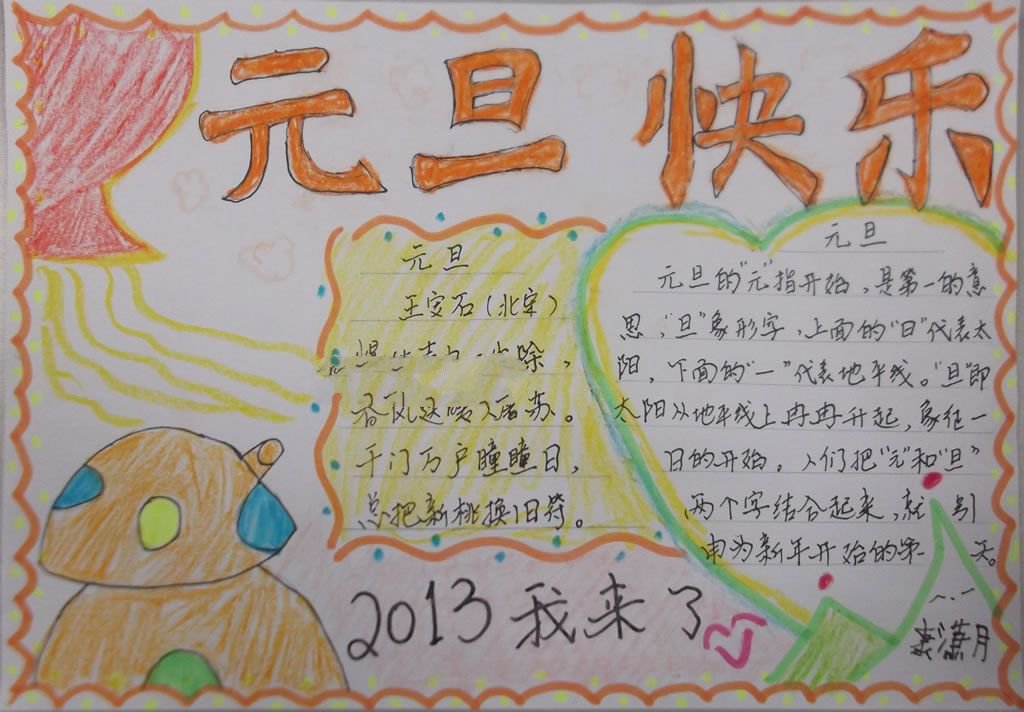 元旦快乐
元旦
王安石(北宋)
除,
春风送暖入屠苏。
千门万户瞳瞳日,
总把新桃换旧符。
元旦
元旦的"元"指开始,是第一的意
思,"旦"象形字,上面的"日"代表太
阳,下面的"一"代表地平线。"旦"即
太阳从地平线上冉冉升起,象征一
日的开始。人们把"元"和"旦"
两个字结合起来,就 引
申为新年开始的第一 天。
2013我来了
潇月